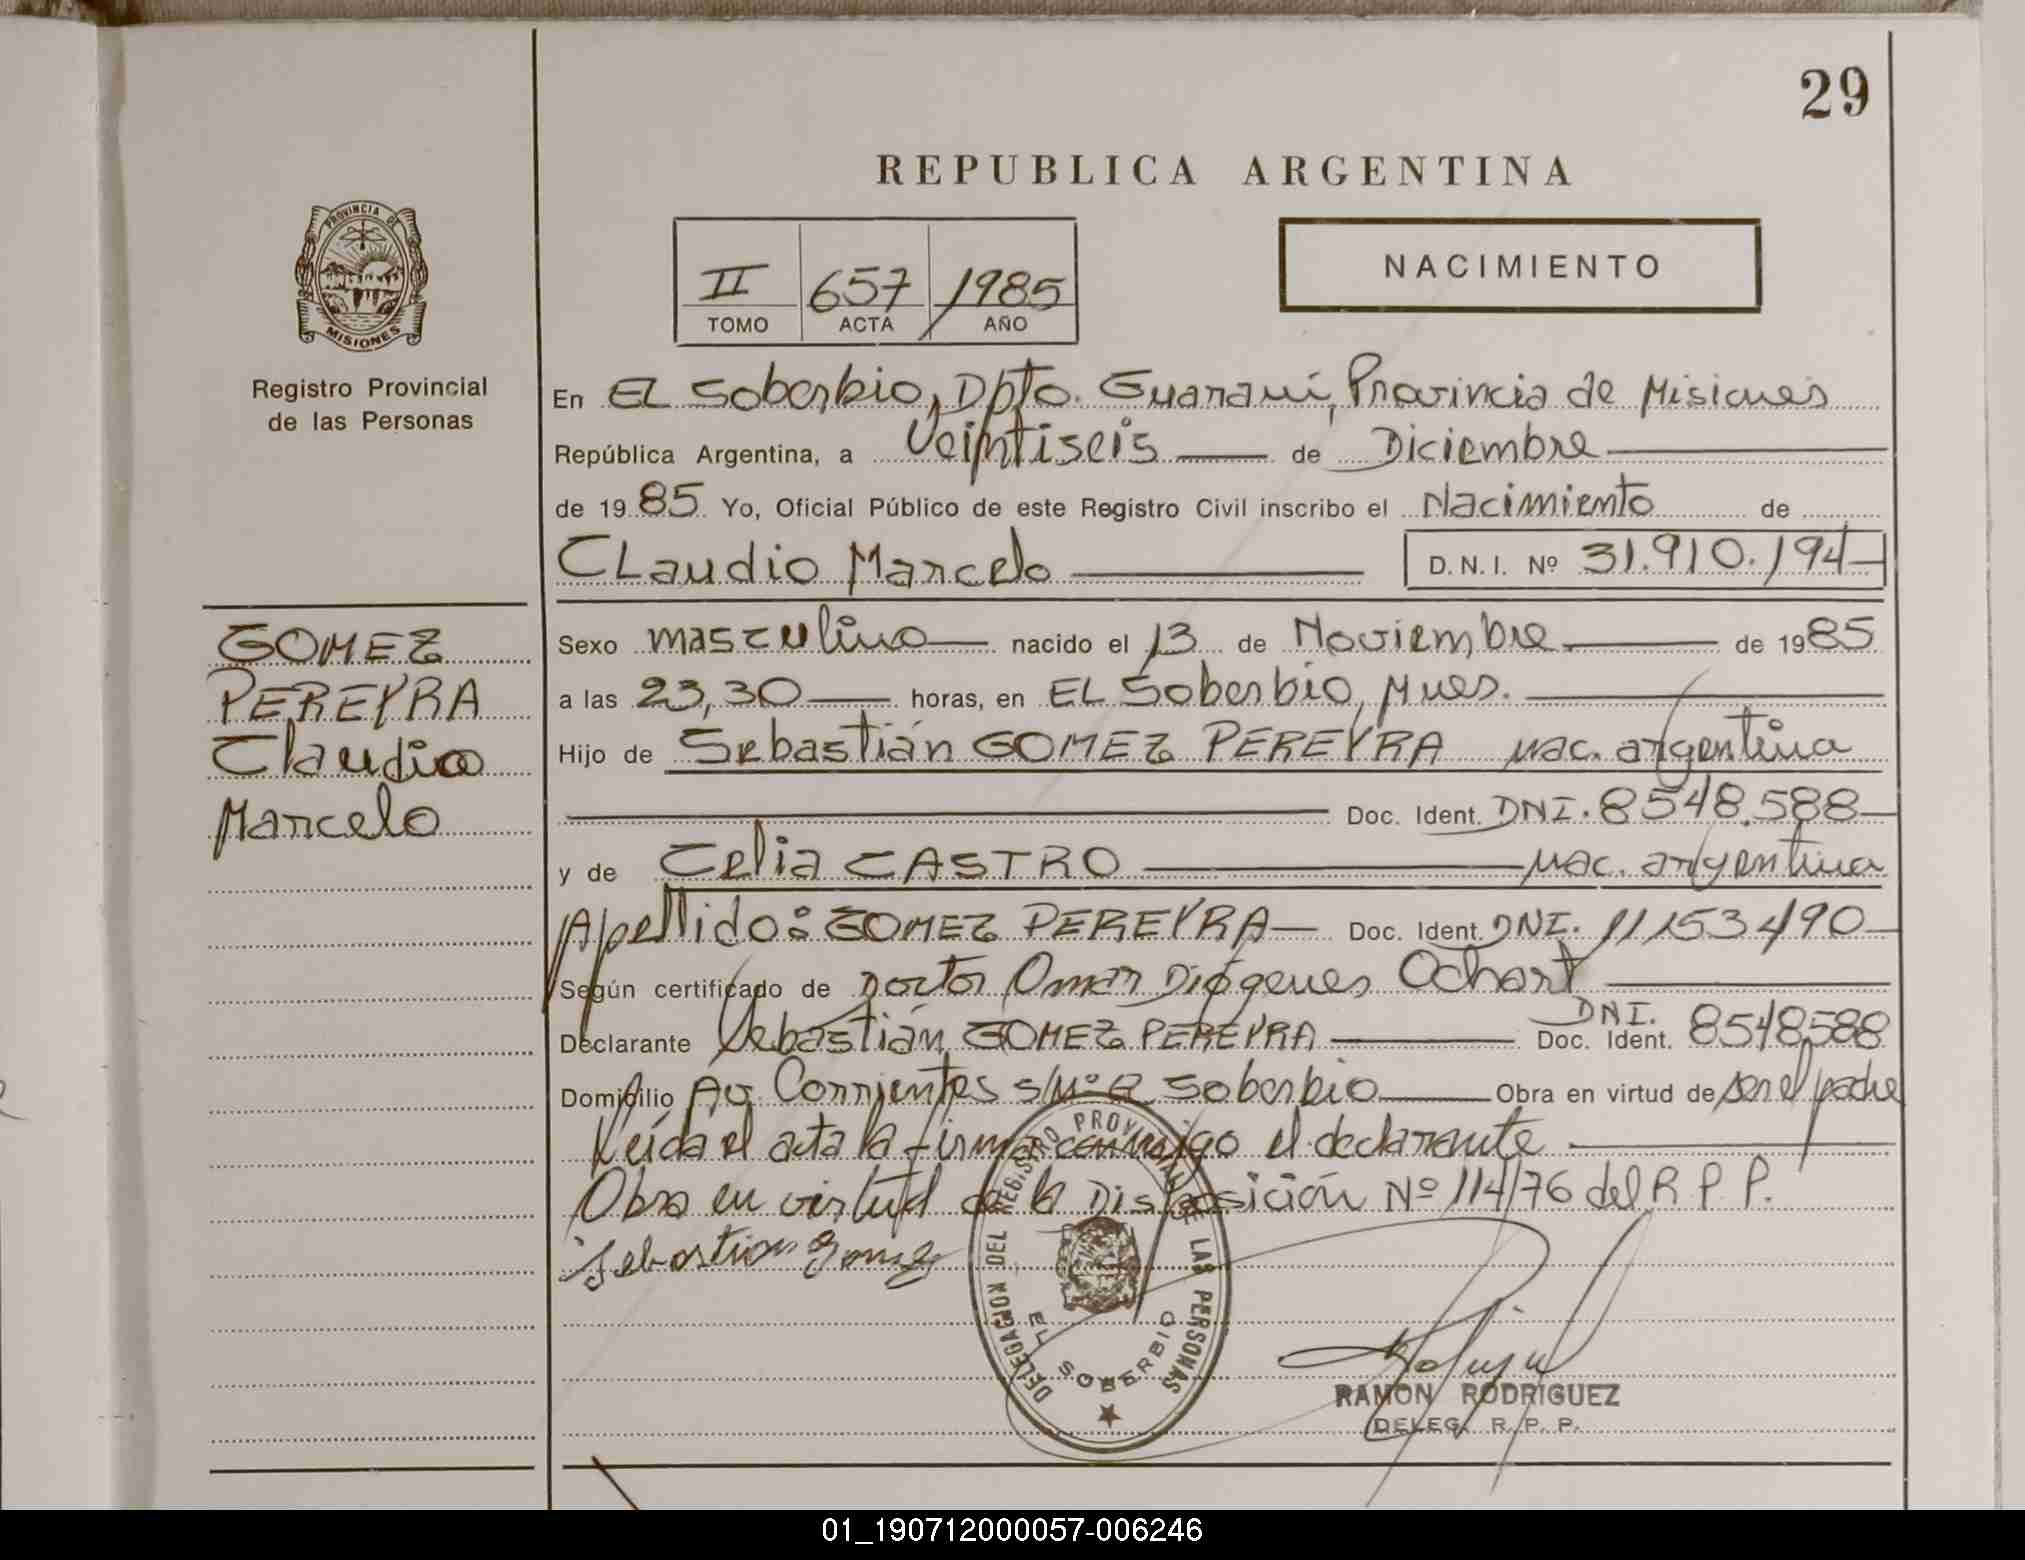 29
REPUBLICA ARGENTINA
PROVINCIA DE
MISIONES
Registro Provincial
de las Personas
II 657 /1985
TOMO ACTA AÑO
NACIMIENTO
En EL Soberbio, Dpto. Guaraní, Provincia de Misiones
República Argentina, a Veintiseis de Diciembre
de 1985 Yo, Oficial Público de este Registro Civil inscribo el Nacimiento de
CLaudio Marcelo D.N.I. Nº 31.910.194
GOMEZ
PEREYRA
Claudio
Marcelo
Sexo masculino nacido el 13 de Noviembre de 1985
a las 23,30 horas, en EL Soberbio, Mnes.
Hijo de Sebastián GOMEZ PEREYRA nac. argentina
Doc. Ident. DNI. 8548.588
y de Celia CASTRO nac. argentina
Apellido: GOMEZ PEREYRA Doc. Ident. DNI. 11153490
Según certificado de Doctor Omar Diógenes Ochart
Declarante Sebastián GOMEZ PEREYRA Doc. Ident. DNI. 8548588
Domicilio Av. Corrientes s/Nº Soberbio Obra en virtud de ser el padre
Leída el acta la firma conmigo el declarante
Obra en virtud de la Disposición Nº 114/76 del R P P.
Sebastian Gomez
DELEGACION DEL REGISTRO PROVINCIAL DE LAS PERSONAS
EL SOBERBIO
RAMON RODRIGUEZ
DELEG. R. P. P.
01_190712000057-006246